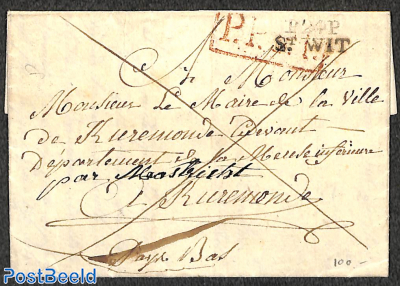 P.P.
P. P
ST WIT
A Monsieur
Monsieur Le Maire de la Ville
de Ruremonde
Departement de la Meuse inferieure
par Mastricht
A Ruremonde
Pays Bas
100.-
PostBeeld